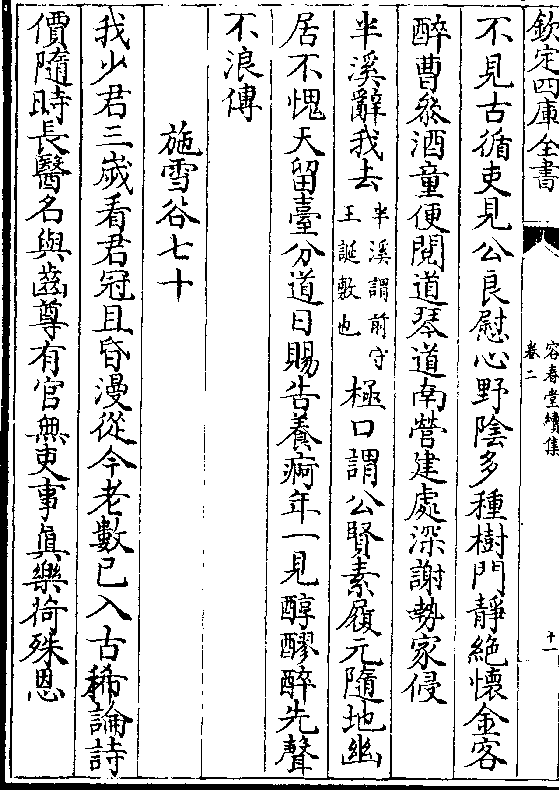 不見古循吏見公良慰心野陰多種樹門靜絶懷金客
醉曹參酒童便閱道琴道南營建處深謝勢家侵
半溪辭我去半溪謂前守王誕敷也極口謂公賢素履元隨地幽
居不愧天留臺分道日賜告養痾年一見醇醪醉先聲
不浪傳
施雪谷七十
我少君三歲看君冠且昏漫從今老數已入古稀論詩
價隨時長醫名與齒尊有官無吏事真樂荷殊恩
欽定四庫全書
容春堂續集
卷二
十一